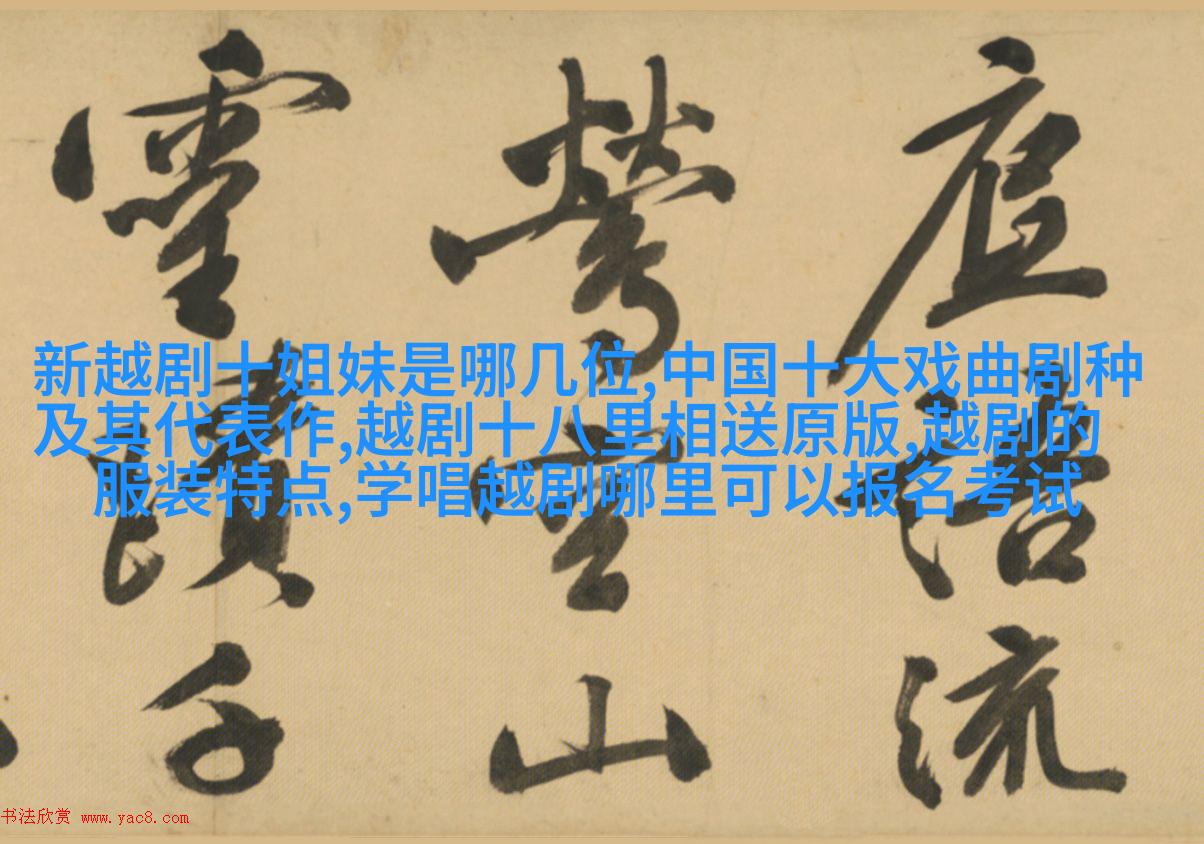 新越剧十姐妹是哪几位,中国十大戏曲剧种
及其代表作,越剧十八里相送原版,越剧的
服装特点,学唱越剧哪里可以报名考试
流
鶯空山
千
书法欣赏 www.yac8.com